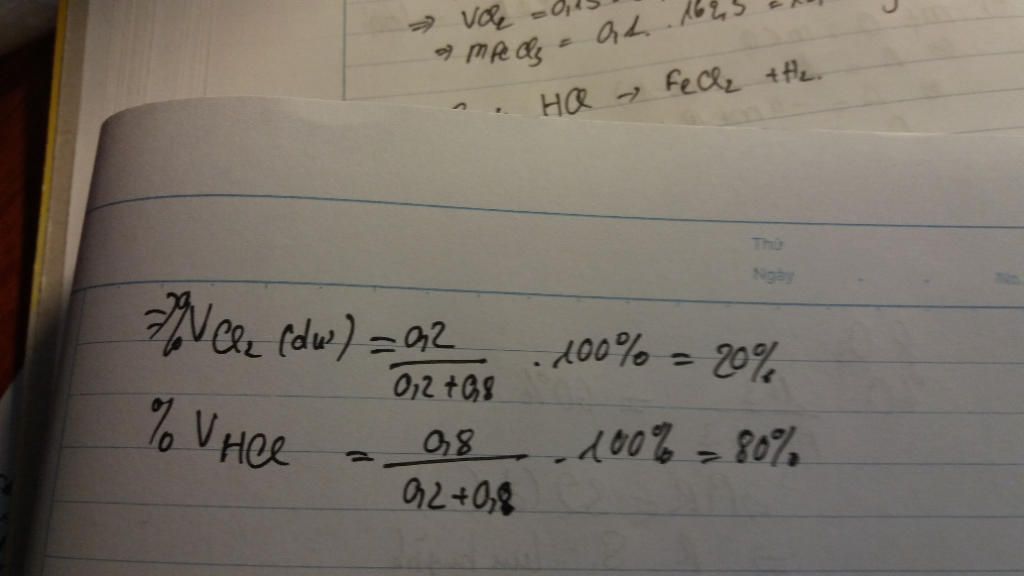 ⇒ VCl₂ = 0,15
⇒ mFeCl₃ = 0,1. 162,5 =
HCl → FeCl₂ + H₂.
Thứ
Ngày
No.
⇒ %V Cl₂ (dư) = 0,2 / 0,2 + 0,8 . 100% = 20%
% V HCl = 0,8 / 0,2 + 0,8 . 100% = 80%